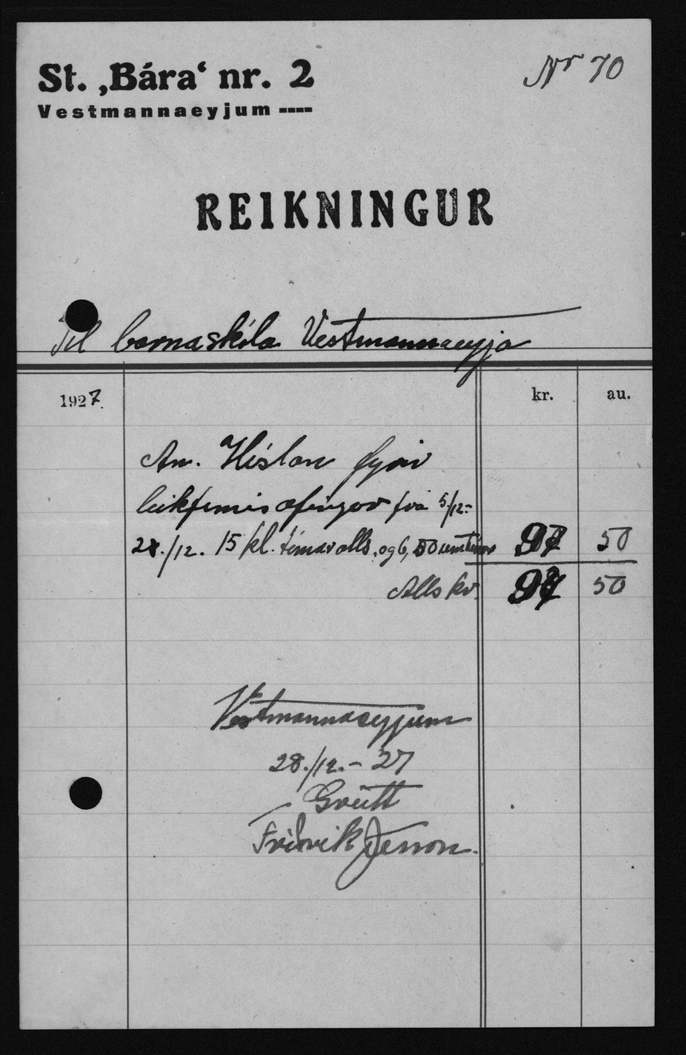 St. ‚Bára‘ nr. 2
Nr 70
Vestmannaeyjum ----
REIKNINGUR
Til barnaskóla Vestmannaeyja
1927.
kr. au.
An. Híslan fyrir
leikfimisæfingar frá 5/12-
28./12. 15 kl. tímar alls, og 6,50 um tíman 97 50
Alls kr. 97 50
Vestmannaeyjum
28./12. - 27
Greitt
Friðrik Jesson.